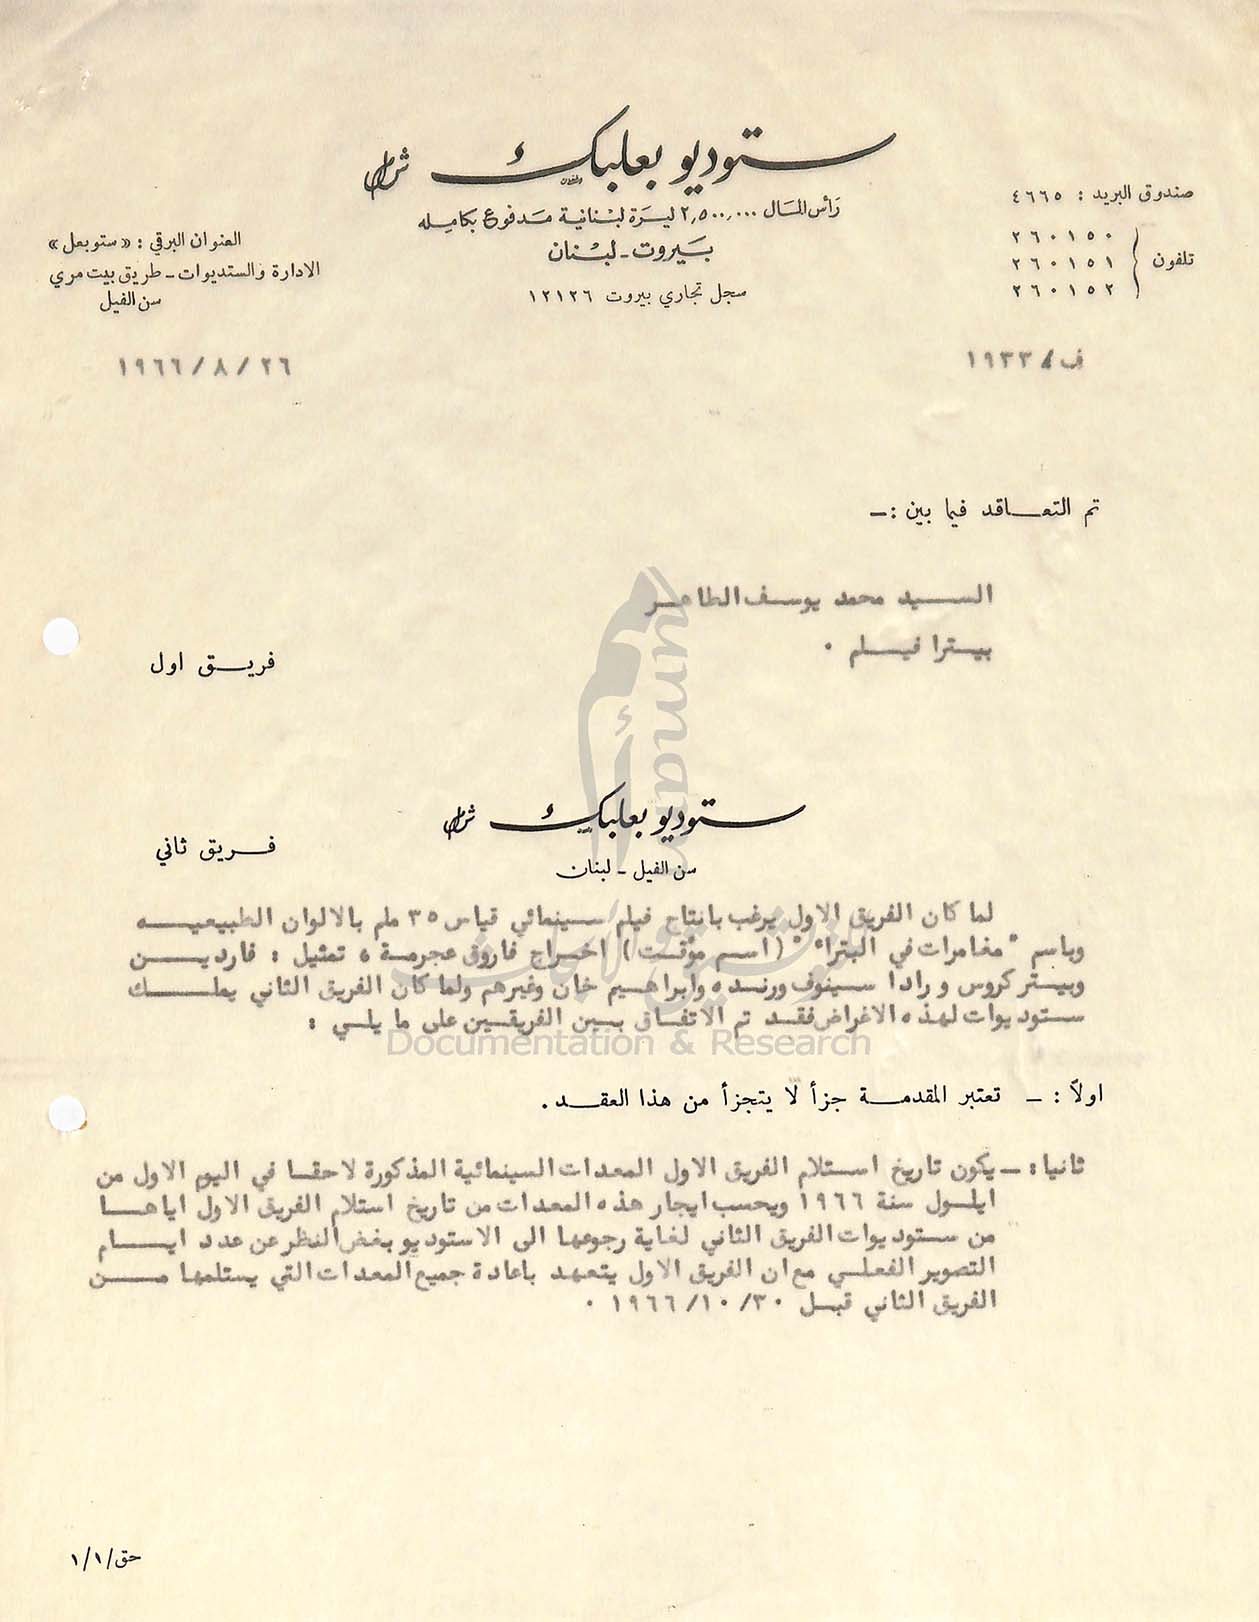 ستوديو بعلبك ش.م.ل
رأس المال ٢,٥٠٠,٠٠٠ ليرة لبنانية مدفوع بكامله
بيروت - لبنان
سجل تجاري بيروت ١٢١٢٦
صندوق البريد : ٤٦٦٥
تلفون
٢٦٠١٥٠
٢٦٠١٥١
٢٦٠١٥٢
العنوان البرقي : « ستوبعل »
الادارة والستديوات - طريق بيت مري
سن الفيل
ف / ١٩٣٣
٢٦ / ٨ / ١٩٦٦
تم التعاقد فيما بين :-
السيد محمد يوسف الطاهر
بيترا فيلم .
فريق اول
ستوديو بعلبك ش.م.ل
سن الفيل - لبنان
فريق ثاني
لما كان الفريق الاول يرغب بانتاج فيلم سينمائي قياس ٣٥ ملم بالالوان الطبيعيه
وباسم " مغامرات في البترا " (اسم مؤقت) اخراج فاروق عجرمة ، تمثيل : فاردين
وبيتر كروس و رادا سينوف ورنده وابراهيم خان وغيرهم ولما كان الفريق الثاني يملك
ستوديوات لهذه الاغراض فقد تم الاتفاق بين الفريقين على ما يلي :
اولاً : - تعتبر المقدمة جزأ لا يتجزأ من هذا العقد .
ثانيا : - يكون تاريخ استلام الفريق الاول المعدات السينمائية المذكورة لاحقا في اليوم الاول من
ايلول سنة ١٩٦٦ ويحسب ايجار هذه المعدات من تاريخ استلام الفريق الاول اياها
من ستوديوات الفريق الثاني لغاية رجوعها الى الاستوديو بغض النظر عن عدد ايام
التصوير الفعلي مع ان الفريق الاول يتعهد باعادة جميع المعدات التي يستلمها من
الفريق الثاني قبل ٣٠ / ١٠ / ١٩٦٦ .
حق/١/١
umam
Documentation & Research